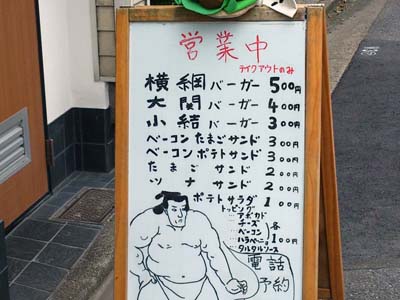 営業中
テイクアウトのみ
横綱バーガー 500円
大関バーガー 400円
小結バーガー 300円
ベーコンたまごサンド 300円
ベーコンポテトサンド 300円
たまごサンド 200円
ツナサンド 200円
ポテトサラダ 100円
トッピング
アボカド
チーズ
ベーコン
ハラペーニョ
タルタルソース
各100円
電話
予約